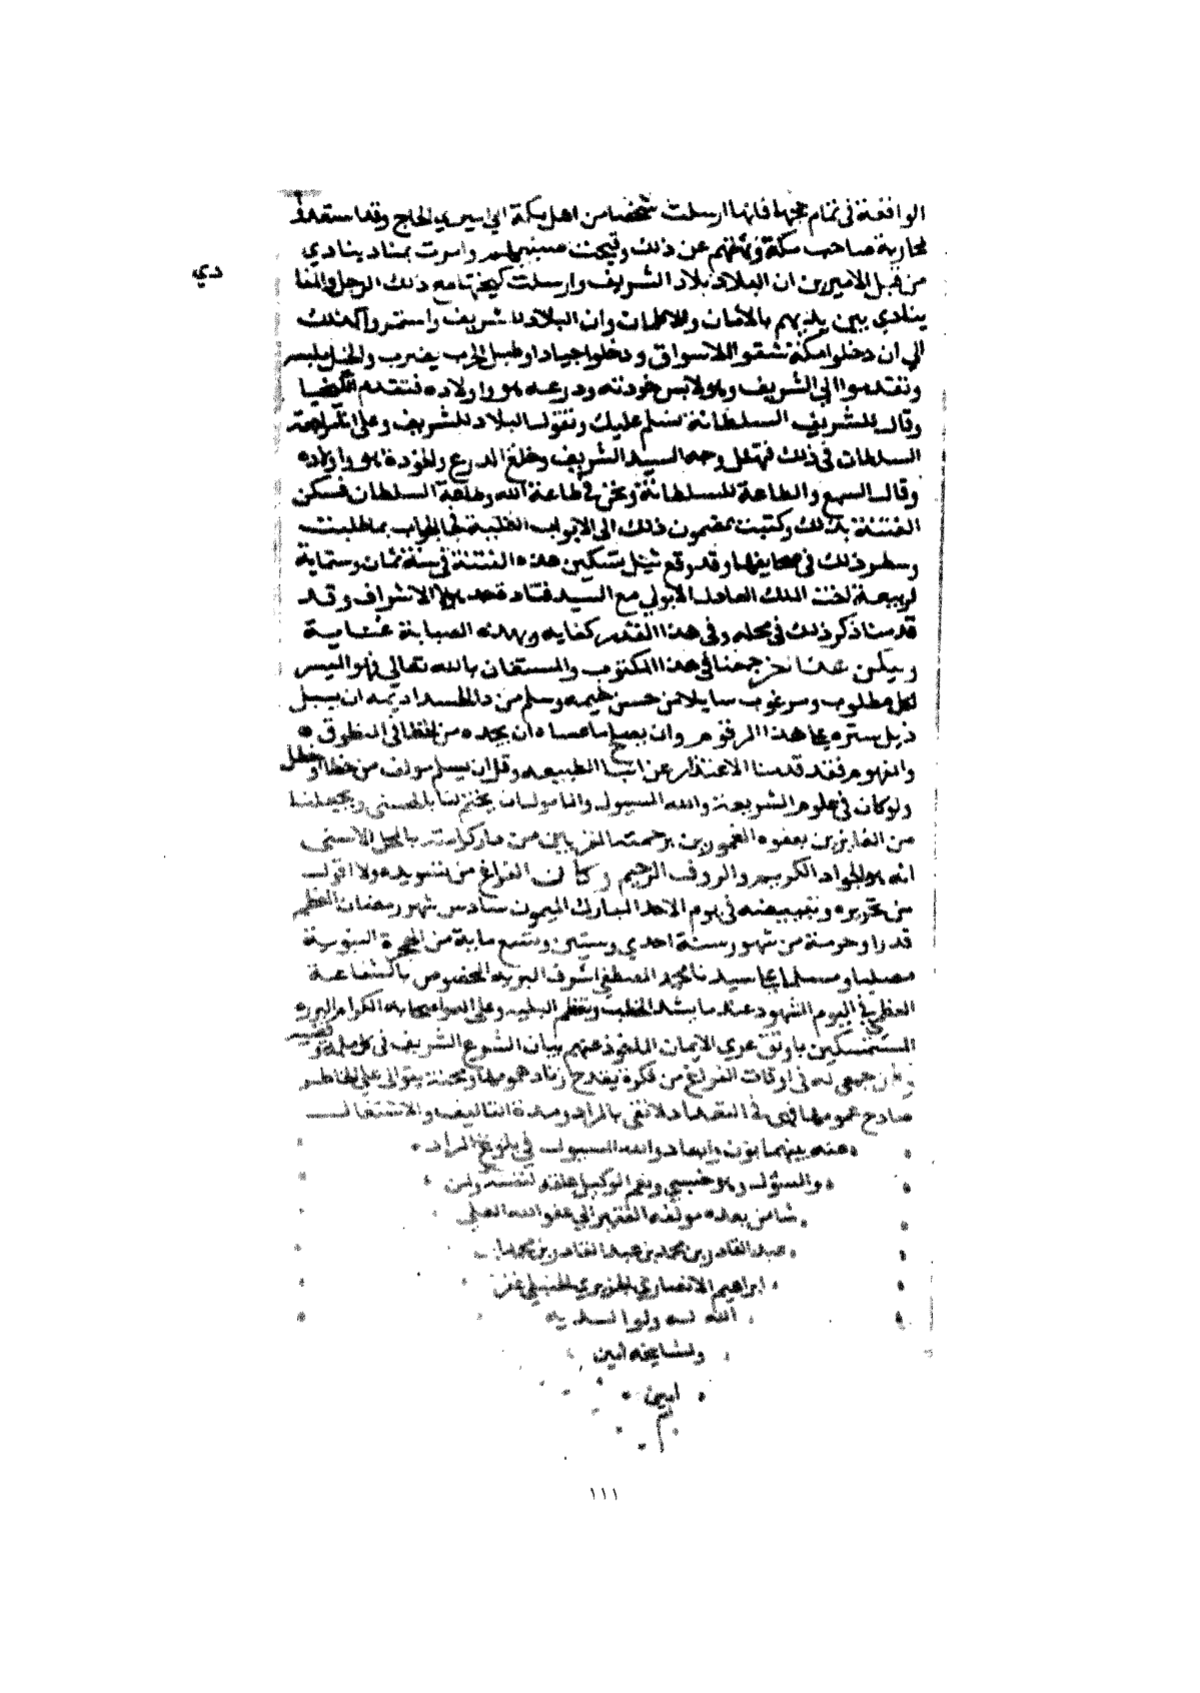 الواقعة في تمام حجها فانها ارسلت شخصا من اهل مكة الي اميري الحاج وقد استعدا
لمحاربة صاحب مكة ونهتهم عن ذلك وقبحت وامرت بمناد ينادي
دي
من قبل الاميرين ان البلاد بلاد الشريف وارسلت مع ذلك الرجل والمنا
ينادي بين يديهم بالأمان والاطمان وان البلاد للشريف واستمروا كذلك
الي ان دخلوا مكة فشقوا الاسواق ودخلوا جيادا وطبل الحرب يضرب والخيل
وتقدموا الي الشريف وهو لابس خوذته ودرعه هو واولاده فتقدم
وقال للشريف السلطانة تسلم عليك وتقول البلاد للشريف وعلي مراجعة
السلطان في ذلك فتهلل وجه السيد الشريف وخلع الدرع والخوذة هو واولاده
وقال السمع والطاعة للسلطانة ونحن في طاعة الله وطاعة السلطان فسكن
الفتنة بذلك وكتبت بمضمون ذلك الي الابواب فجا الجواب بما طلبت
وسطر ذلك في صحايفها وقد وقع مثل تسكين هذه الفتنة في سنة ثمان وستماية
لربيعة اخت الملك العادل الايوبي مع السيد قتادة جد هولا الاشراف وقد
قدمنا ذكر ذلك في محله وفي هذا القدر كفايه وبهذه الصبابة
وليكن عنان جمحنا في هذا المكتوب والمستعان بالله تعالي فهو الميسر
لكل مطلوب ومرغوب سايلا من حسن خيمه وسلم من دا الحسد اديمه ان يسبل
ذيل ستره علي هذا المرقوم وان يصلح ما عساه ان يجده من الخطا في المنطوق
والمفهوم فقد قدمنا الاعتذار عن الطبيعه وقل ان يسلم مولف من خطا او خطل
ولو كان في علوم الشريعة والله المسيول والمامول ان يختم لنا بالحسني ويجعلنا
من الفايزين بعفوه المغمورين برحمته القريبين من دار كرامته بالمحل الاسني
انه هو الجواد الكريم والروف الرحيم وكان الفراغ من تسويده ولا اقول
من تحريره وتبييضه في يوم الاحد المبارك الميمون سادس شهر رمضان المعظم
قدرا وحرمة من شهور سنة احدي وستين وتسع ماية من الهجرة النبوية
مصليا ومسلما علي سيدنا محمد المصطفي اشرف البريه المخصوص بالشفاعة
العظمي في اليوم المشهود عند ما يشتد الخطب وتعظم البليه وعلي اله واصحابه الكرام البرره
المستمسكين باوثق عري الايمان الماخوذ عنهم بيان الشرع الشريف في كل
وكان جمعي له في اوقات الفراغ من فكرة يقدح زناد همومها ومحنة يتوالي علي الخاطر
صادح غمومها فهي في التعداد لا تفي بالمراد ومدة التاليف والاشتغال
عنه بينهما بون وابعاد والله المسيول في بلوغ المراد
والسؤل وهو حسبي ونعم الوكيل علقه لنفسه ولمن
شا من بعده مولفه الفقير الي عفو الله العلي
عبد القادر بن محمد بن عبد القادر بن محمد بن
ابراهيم الانصاري الجزيري الحنبلي غفر
الله له ولوالديه
ولمشايخه امين
امين
تم
١١١